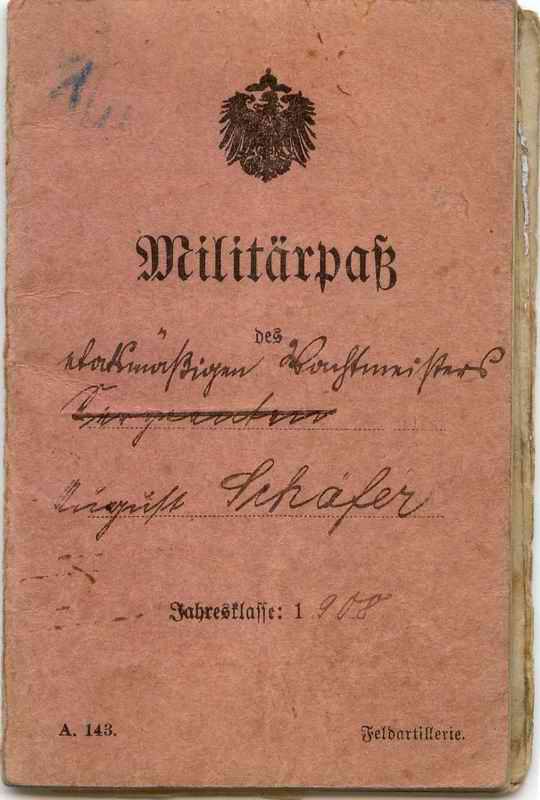 Militärpaß
des
etatsmäßigen Wachtmeisters
Sergeanten
August Schäfer
Jahresklasse: 1908
A. 143.
Feldartillerie.